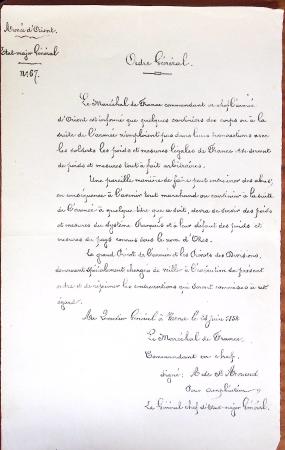 Armée d'Orient.
Etat-major Général
N° 67.
Ordre Général.
Le Maréchal de France commandant en chef l'armée
d'Orient est informé que quelques cantiniers des corps ou à la
suite de l'armée n'emploient pas dans leurs transactions avec
les soldats les poids et mesures légales de France et se servent
de poids et mesures tout à fait arbitraires.
Une pareille manière de faire peut entraîner des abus,
en conséquence à l'avenir tout marchand ou cantinier à la suite
de l'armée à quelque titre que ce soit, devra se servir des poids
et mesures du système français et à leur défaut des poids et
mesures du pays connus sous le nom d'Okes.
Le grand Prévôt de l'armée et les Prévôts des Divisions,
demeurent spécialement chargés de veiller à l'exécution du présent
ordre et de réprimer les contraventions qui seront commises à cet
égard.
Au Quartier Général à Varna le 28 juin 1854
Le Maréchal de France,
Commandant en chef,
Signé: A de St Arnaud
Pour ampliation
Le Général chef d'Etat-major Général.